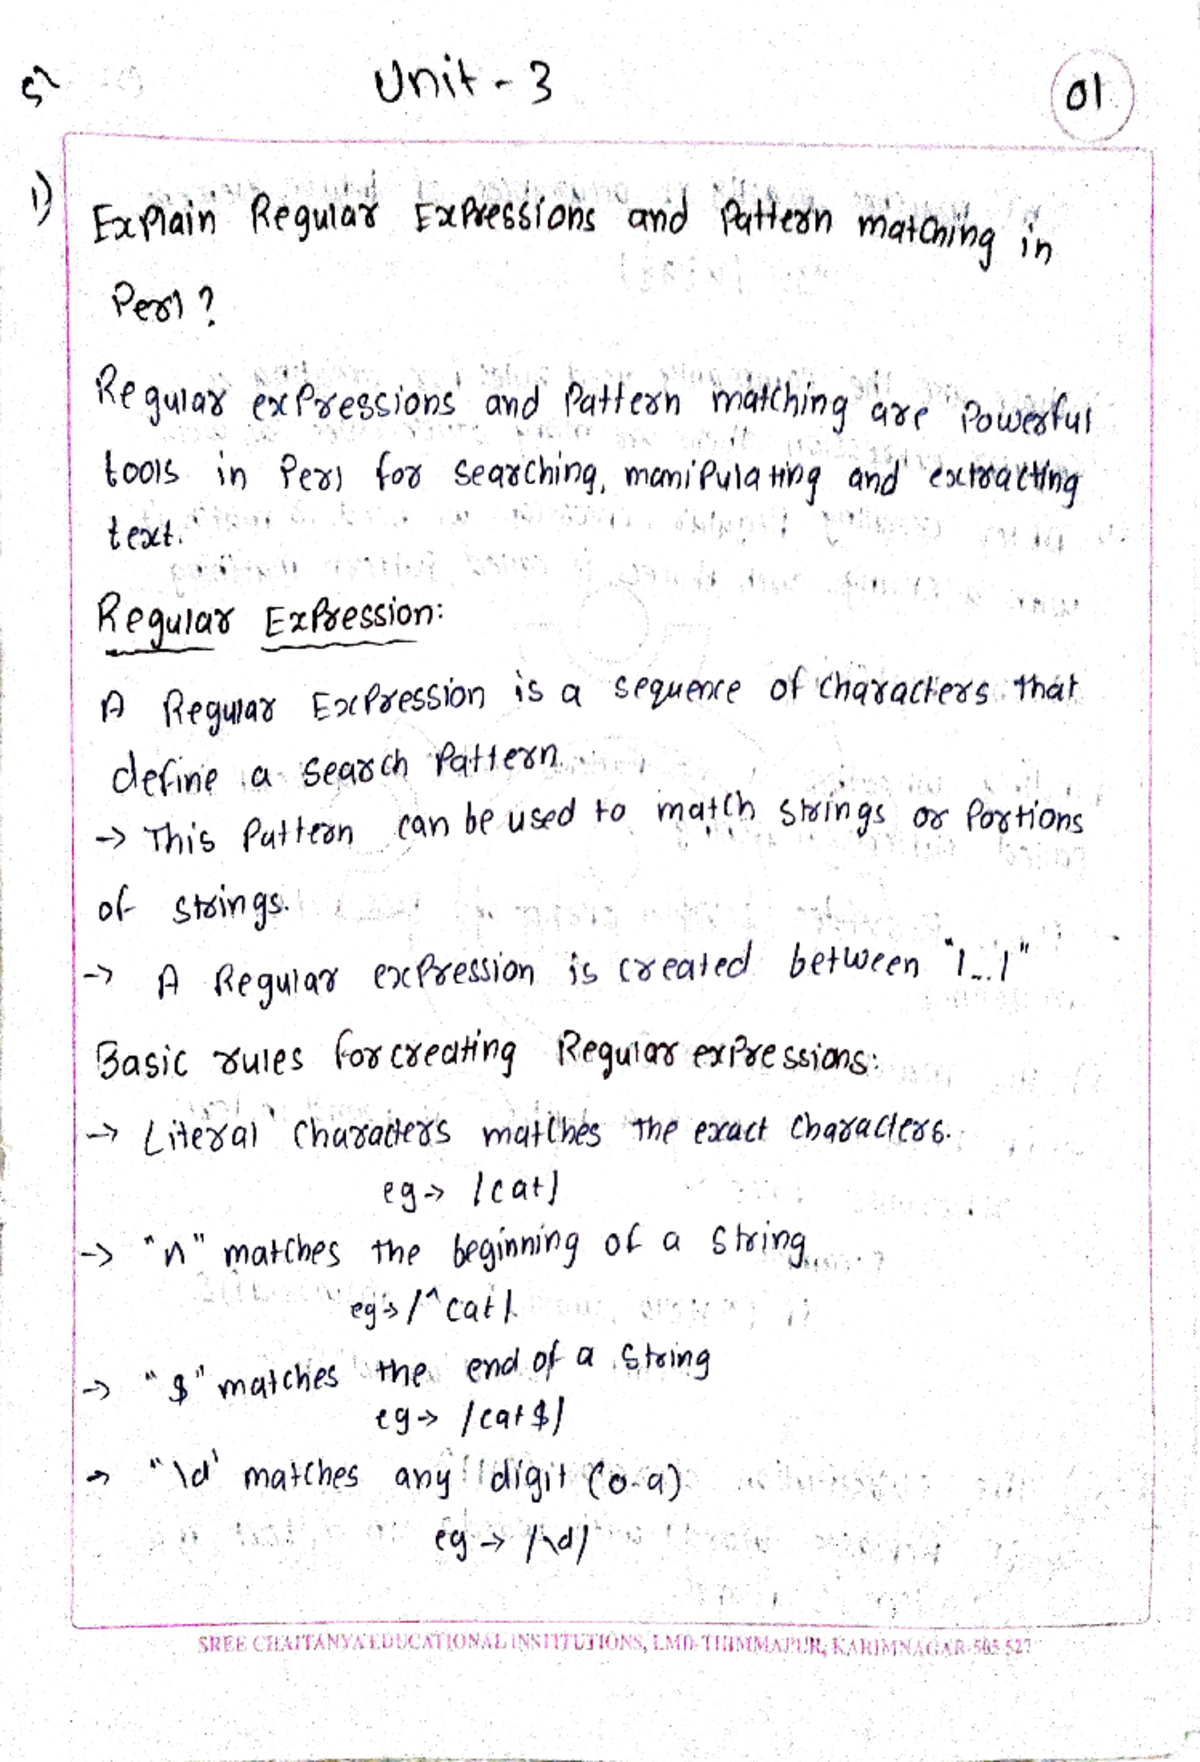 Unit - 3
01
1)
Explain Regular Expressions and Pattern matching in
Perl?
Regular expressions and Pattern matching are Powerful
tools in Perl for searching, manipulating and extracting
text.
Regular Expression:
A Regular Expression is a sequence of characters that
define a search Pattern.
→ This Pattern can be used to match strings or Portions
of strings.
→ A Regular expression is created between "/../"
Basic rules for creating Regular expressions:
→ Literal characters matches the exact characters.
eg → /cat/
→ "^" matches the beginning of a string
eg → /^cat/
→ "$" matches the end of a string
eg → /cat$/
→ "\d' matches any digit (0-9)
eg → /\d/
SREE CHAITANYA EDUCATIONAL INSTITUTIONS, LMD-THIMMAPUR, KARIMNAGAR-505 527